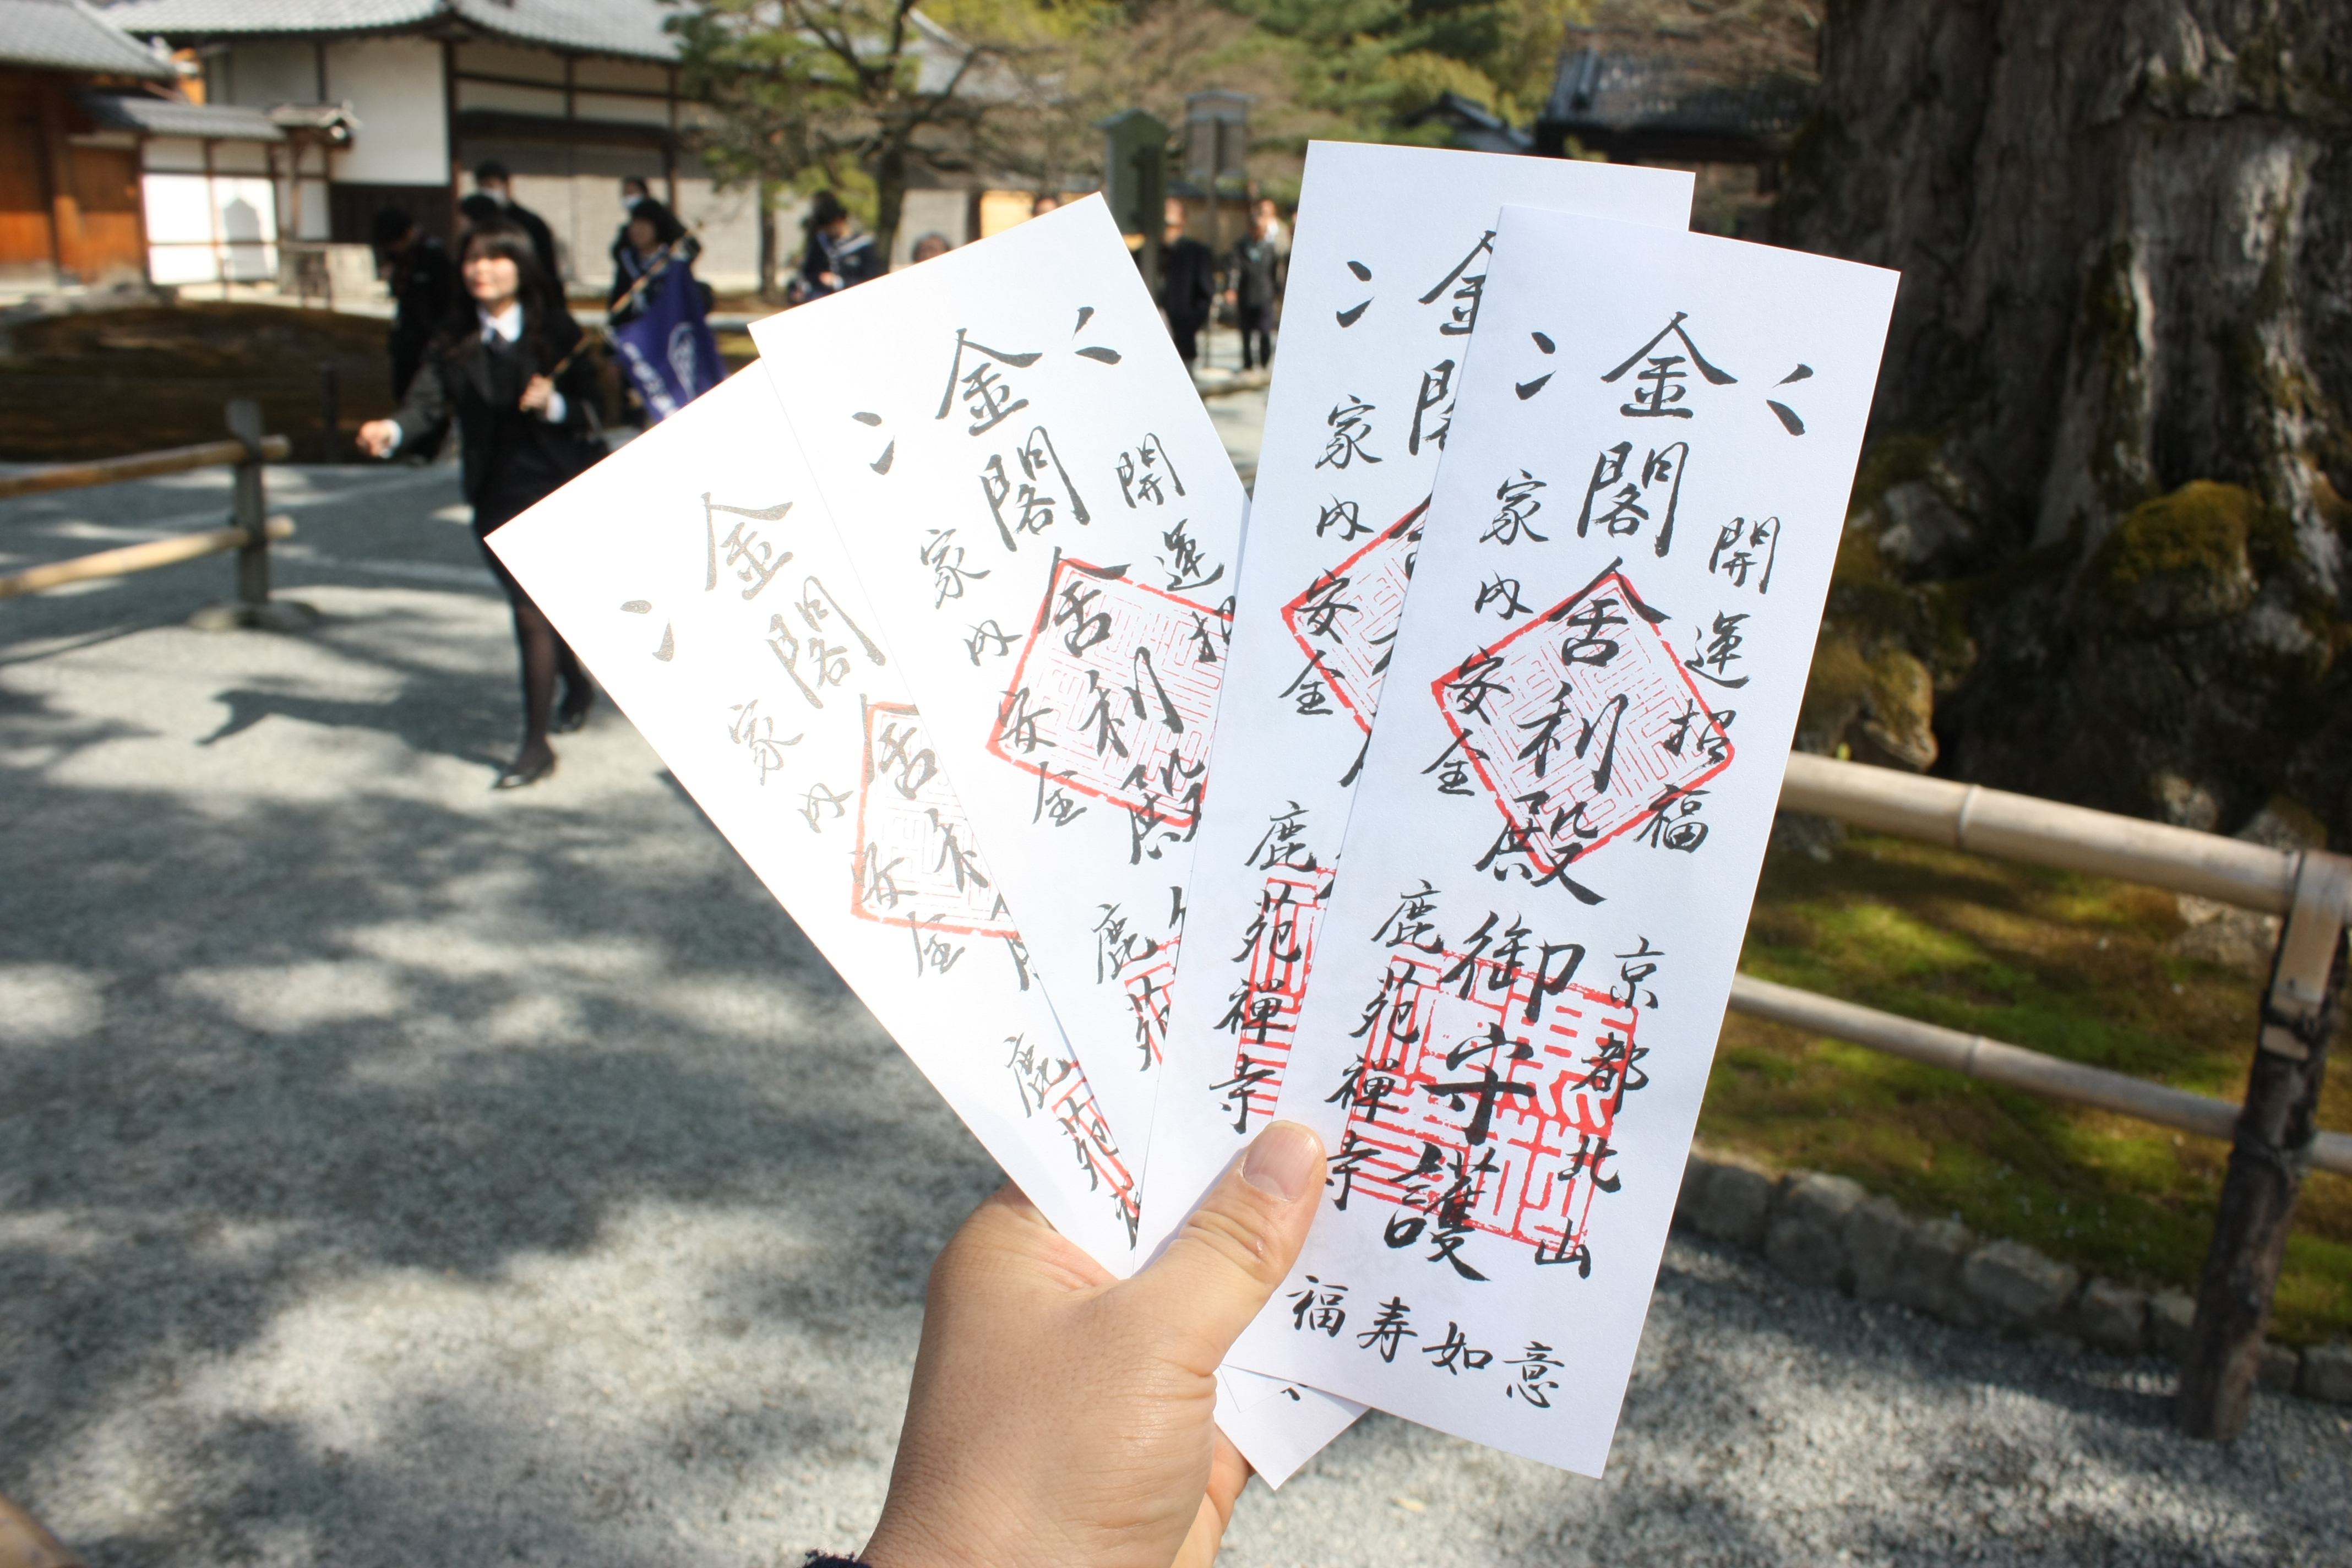 開運招福
京都北山
金閣舎利殿御守護
家内安全
鹿苑禪寺
福寿如意
金閣
家内安全
鹿苑禪寺
開運招
金閣舎利殿
家内安全
鹿苑
金閣舎利
家内安全
鹿苑